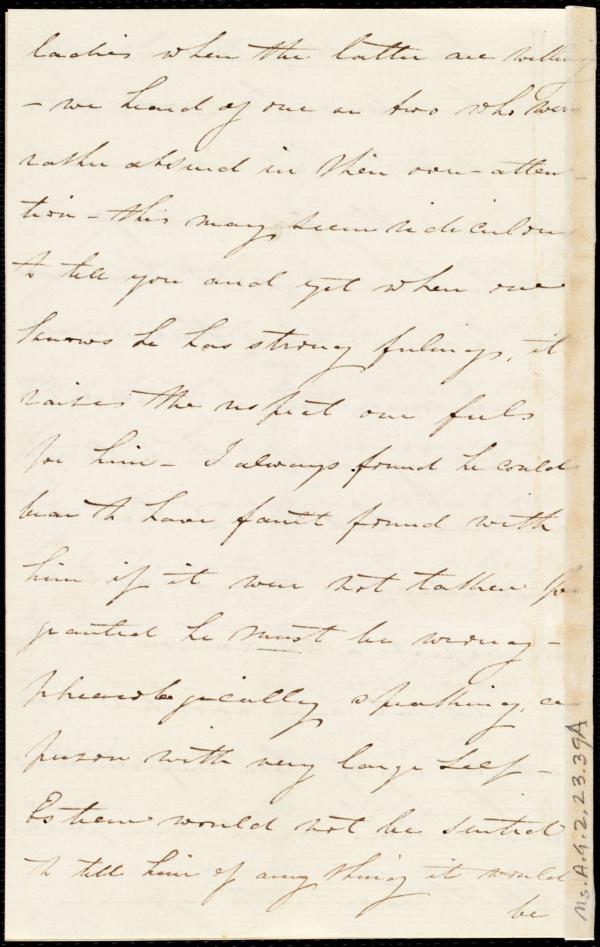 ladies when the latter are willing
- we heard of one or two who were
rather absurd in their over-atten
tion - this may seem ridiculous
to tell you and yet when one
knows he has strong feelings, it
raises the respect one feels
for him - I always found he could
bear to have fault found with
him if it were not taken for
granted he must be wrong -
phrenologically speaking, a
person with very large Self -
Esteem would not be suited
to tell him of any thing it would
be
Ms.A.9.2.23.39A